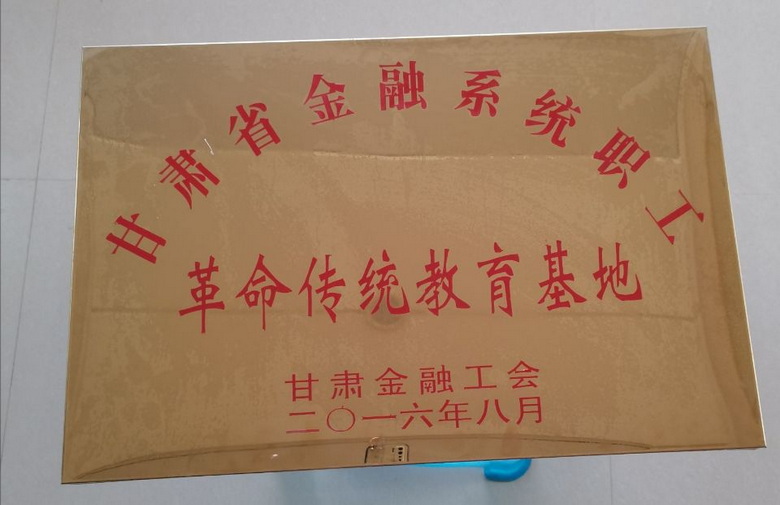 甘肃省金融系统职工
革命传统教育基地
甘肃金融工会
二〇一六年八月